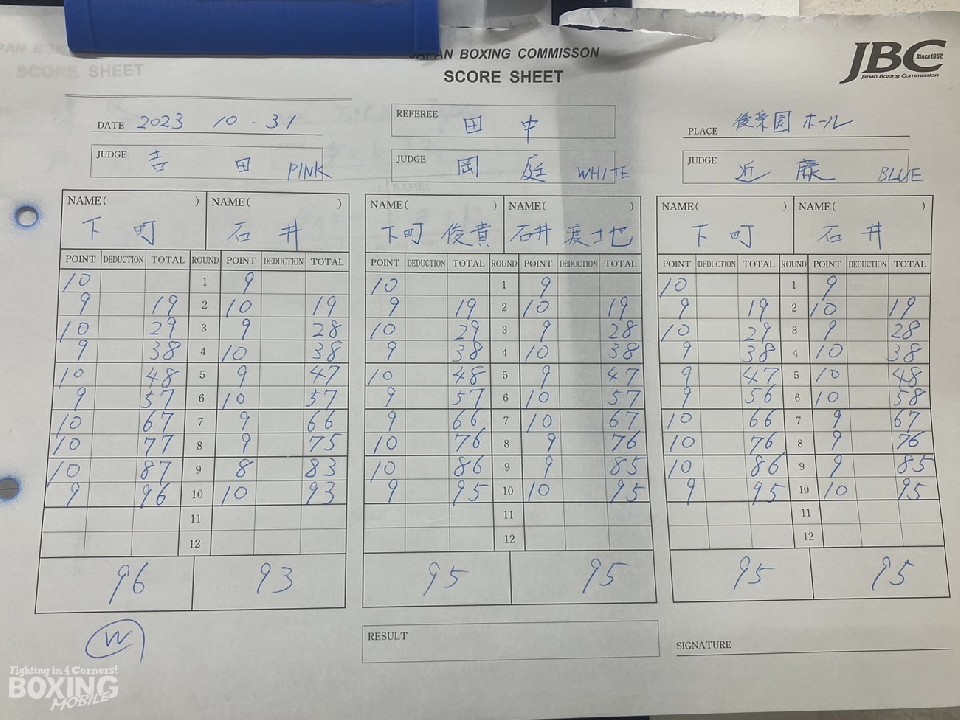 JAPAN BOXING COMMISSON
SCORE SHEET
JBC
Since1952
Japan Boxing Commission
DATE 2023 10.31
REFEREE 田中
PLACE 後楽園ホール
JUDGE 吉田 PINK
JUDGE 岡庭 WHITE
JUDGE 近藤 BLUE
NAME( ) NAME( ) NAME( ) NAME( ) NAME( ) NAME( )
下町 石井 下町俊貴 石井渡士也 下町 石井
POINT DEDUCTION TOTAL ROUND POINT DEDUCTION TOTAL POINT DEDUCTION TOTAL ROUND POINT DEDUCTION TOTAL POINT DEDUCTION TOTAL ROUND POINT DEDUCTION TOTAL
10 1 9 10 1 9 10 1 9
9 19 2 10 19 9 19 2 10 19 9 19 2 10 19
10 29 3 9 28 10 29 3 9 28 10 29 3 9 28
9 38 4 10 38 9 38 4 10 38 9 38 4 10 38
10 48 5 9 47 10 48 5 9 47 9 47 5 10 48
9 57 6 10 57 9 57 6 10 57 9 56 6 10 58
10 67 7 9 66 9 66 7 10 67 10 66 7 9 67
10 77 8 9 75 10 76 8 9 76 10 76 8 9 76
10 87 9 8 83 10 86 9 9 85 10 86 9 9 85
9 96 10 10 93 9 95 10 10 95 9 95 10 10 95
11 11 11
12 12 12
96 93 95 95 95 95
W
RESULT
SIGNATURE
Fighting in 4 Corners!
BOXING
MOBILE